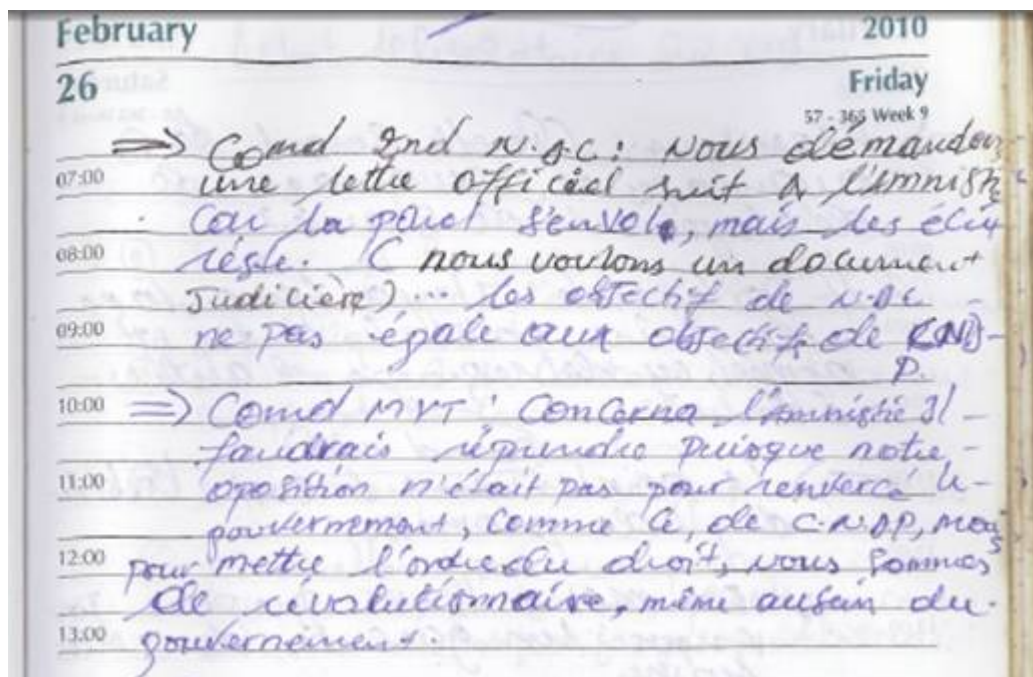 February 2010
26 Friday
57 - 365 Week 9
=> Comd 2nd N.D.C : Nous démandons
07:00 une lettre officiel suit à l'Amnisti
Car la parol s'envole, mais les écrit
08:00 règle. ( nous voulons un document
Judicière) ... les objectif de N.D.C
09:00 ne pas égale aux objectifs de CND-
P.
10:00 => Comd MVT : Concerna l'Amnistié Il
faudrais réprendre puisque notre
11:00 oposition n'était pas pour renversé le
gouvernement, Comme Ce, de C.N.D.P, mais
12:00 pour mettre l'ordre du droit, nous sommes
de révolutionnaire, même ausein du
13:00 gouvernement.